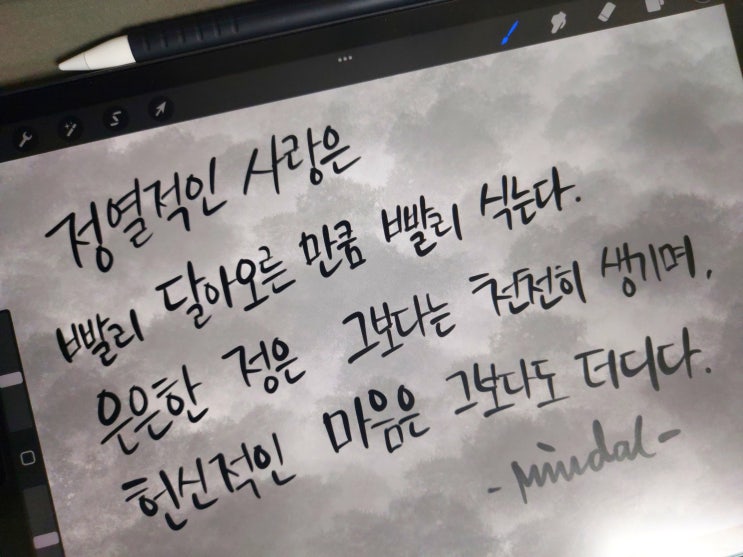 정열적인 사랑은
빨리 달아오른 만큼 빨리 식는다.
은은한 정은 그보다는 천천히 생기며,
헌신적인 마음은 그보다도 더디다.